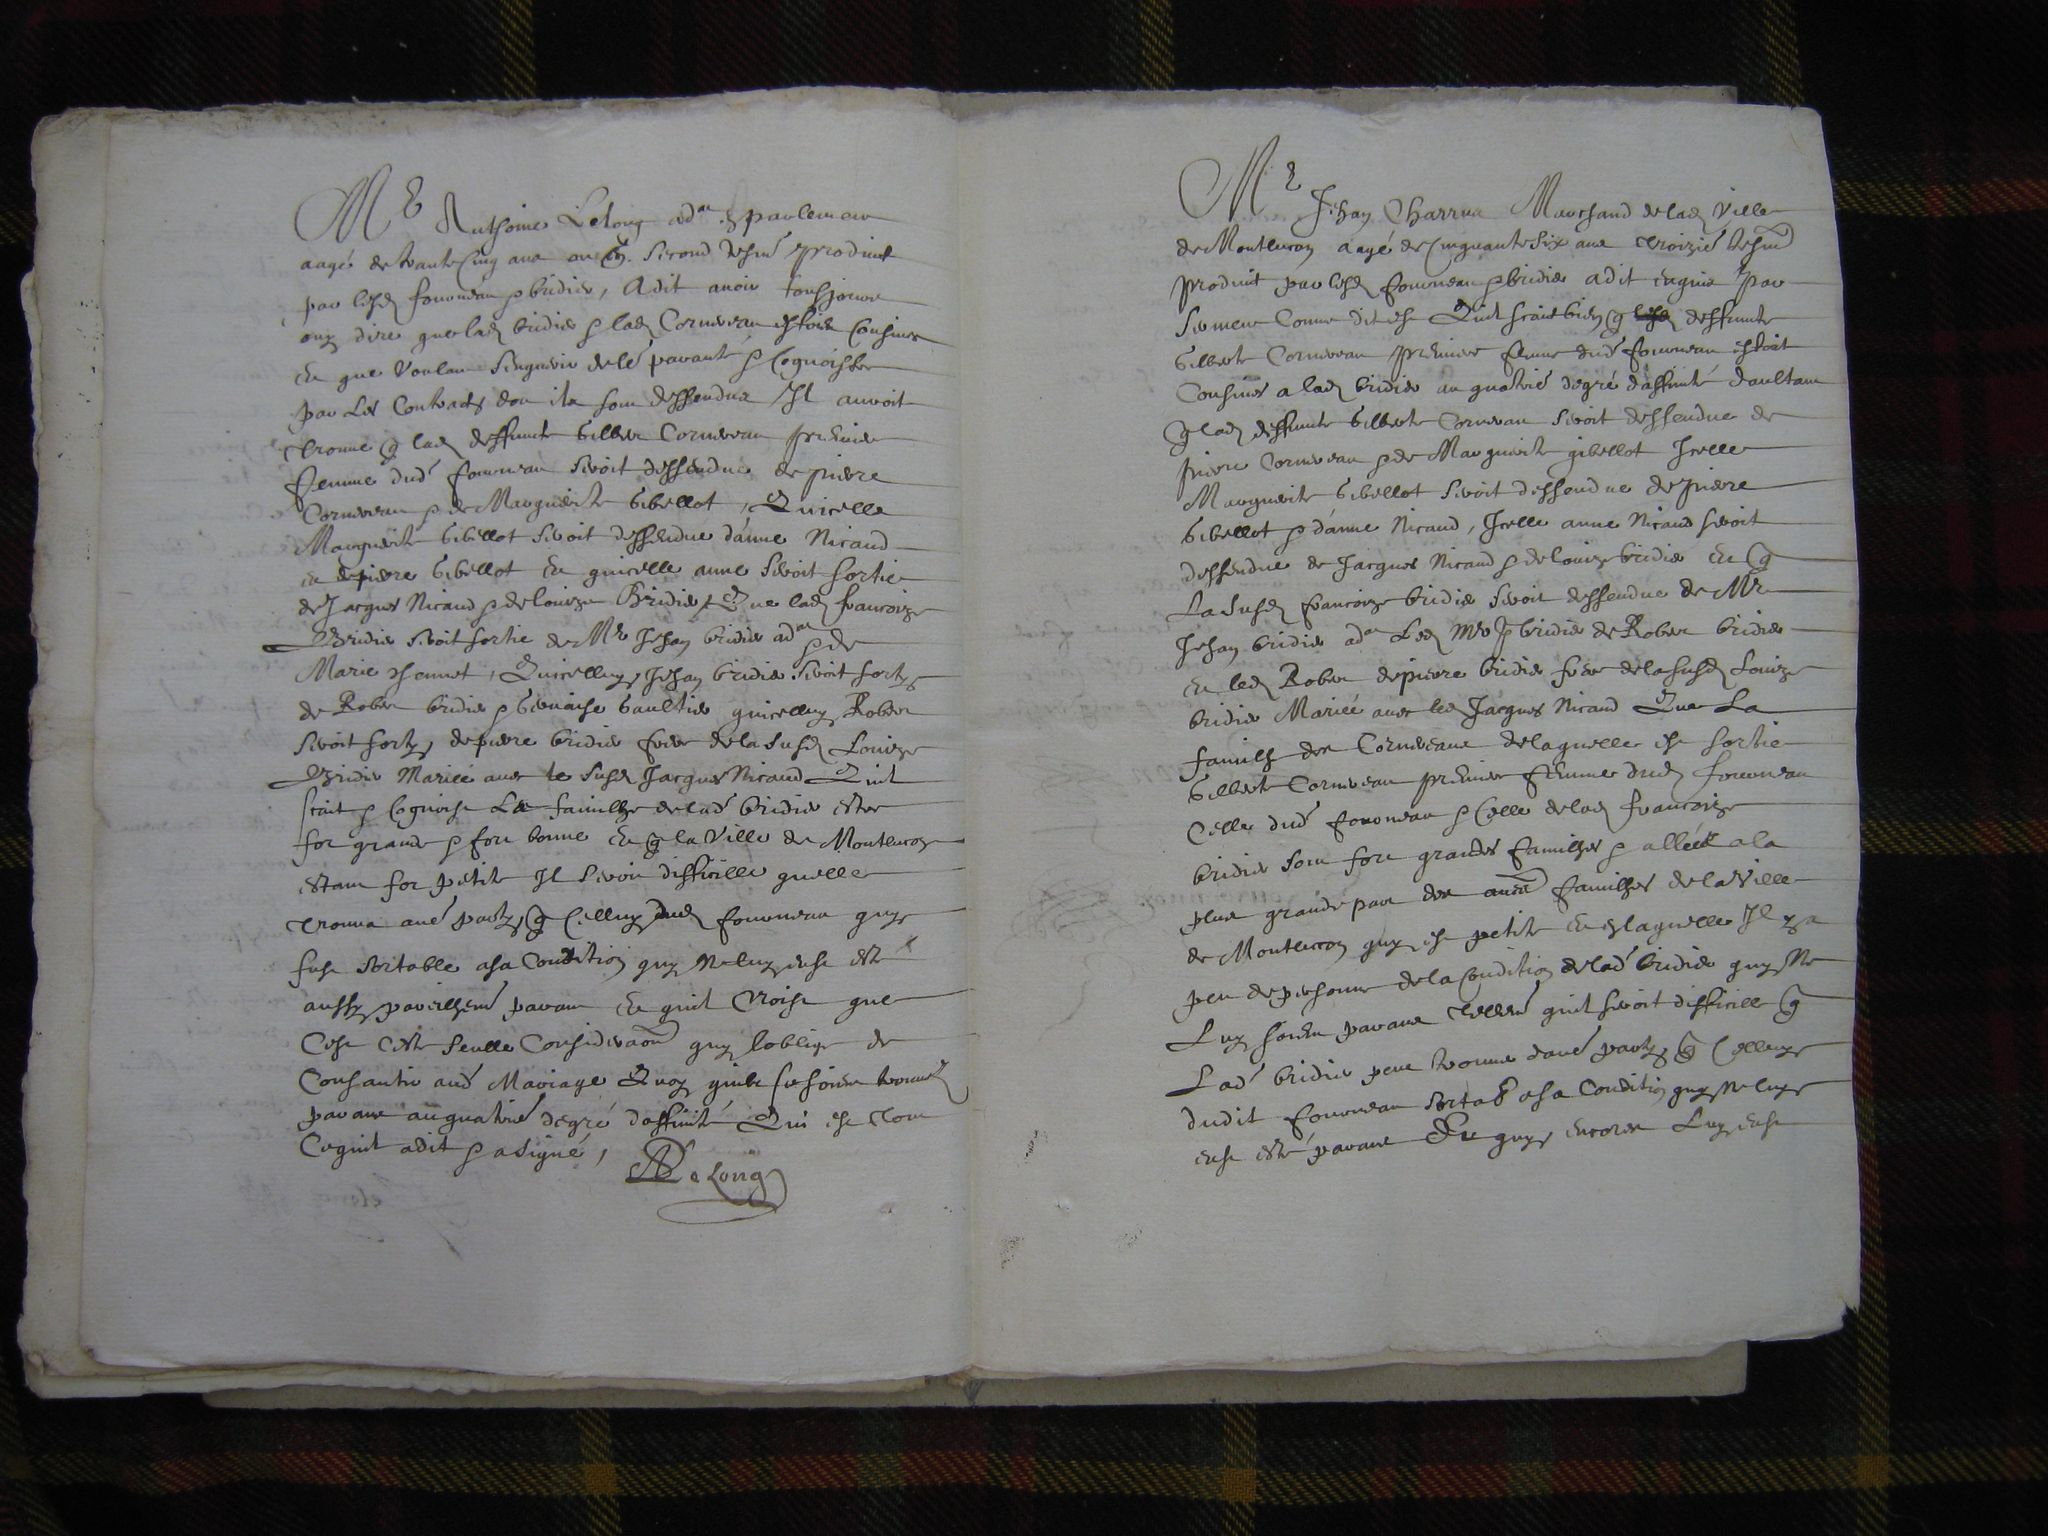 Mr Anthoine Lelong adat parlement
aagé de trante cinq ans ou Second tesm produict
par lesd fourneau & bridier, A dit avoir tousjours
ouy dire que lad bridier & lad Cornereau estoient Cousines
et que voulant senquerir de le paranté & Cognoistre
par les Contracts dou ils sont dessendus Il auroit
trouue q lad deffuncte Gilberte Cornereau premiere
femme dud fourneau seroit dessendue de pierre
Cornereau & de Marguerite Gibellot, Quicelle
Marguerite Gibellot seroit dessendue danne Nicaud
et de pierre Gibellot et quicelle anne seroit sortie
de Jacques Nicaud & de louize Bridier, Que lad francoize
Bridier seroit sortie de Mr Jehan bridier adat & de
Marie Jhennet, Quicelluy Jehan bridier seroit sorty
de Robert bridier & Gervaise Gaultier quicelluy Robert
seroit sorty de pierre bridier frere de la susd Louize
Bridier Mariée avec le susd Jacques Nicaud Quil
scait & Cognoist La famillhe de lad bridier estre
fort grande & fort bonne et q la ville de Montlucon
estant fort petite Il seroit difficille quelle
trouva aue party q Celluy dud fourneau quy
fust sortable a sa Condition quy ne luy eust esté
aussy pareillhemt parant et quil Croist que
Cest ceste seulle Consideraon quy loblige de
Consantir aud Mariage Quoy quils se soient trouués
parans au quatrie degré daffinité Qui est tout
Ce quil a dit & a signé,
ALelong
Mr Jehan Charrua Marchand de lad ville
de Montlucon aagé de Cinquante six ans troizie tesm
produit par lesd fourneau & bridier a dit enquis par
serment Comme dit est Quil scait bien q deffuncte
Gilberte Cornereau premiere femme dud fourneau estoit
Cousines a lad bridier au quatrie degré daffinité daultant
q lad deffuncte Gilberte Cornereau seroit dessendue de
pierre Cornereau & de Marguerite gibellot Icelle
Marguerite Gibellot seroit dessendue de pierre
Gibellot & danne Nicaud, Icelle anne Nicaud seroit
dessendue de Jacques Nicaud & de louize bridier et q
La susd francoize bridier seroit dessendue de Mr
Jehan bridier adat Led Mr Jn bridier de Robert bridier
et led Robert de pierre bridier frere de la susd Louize
bridier Mariée avec led Jacques Nicaud Que La
famille des Cornereaux de laquelle est sortie
Gilberte Cornereau premiere femme dud fourneau
Celle dud fourneau & Celle de lad francoize
bridier sont fort grandes famillhes & alliées a la
plus grande part des autres famillhes de la ville
de Montlucon quy est petite et en laquelle Il y a
peu de personnes de la Condition de lad bridier quy ne
Luy soient parans tellemt quil seroit difficille q
Lad bridier peut trouver dautre party q Celluy
dudit fourneau sortable a sa Condition quy ne luy
eust esté parans Et quy encores Luy eust